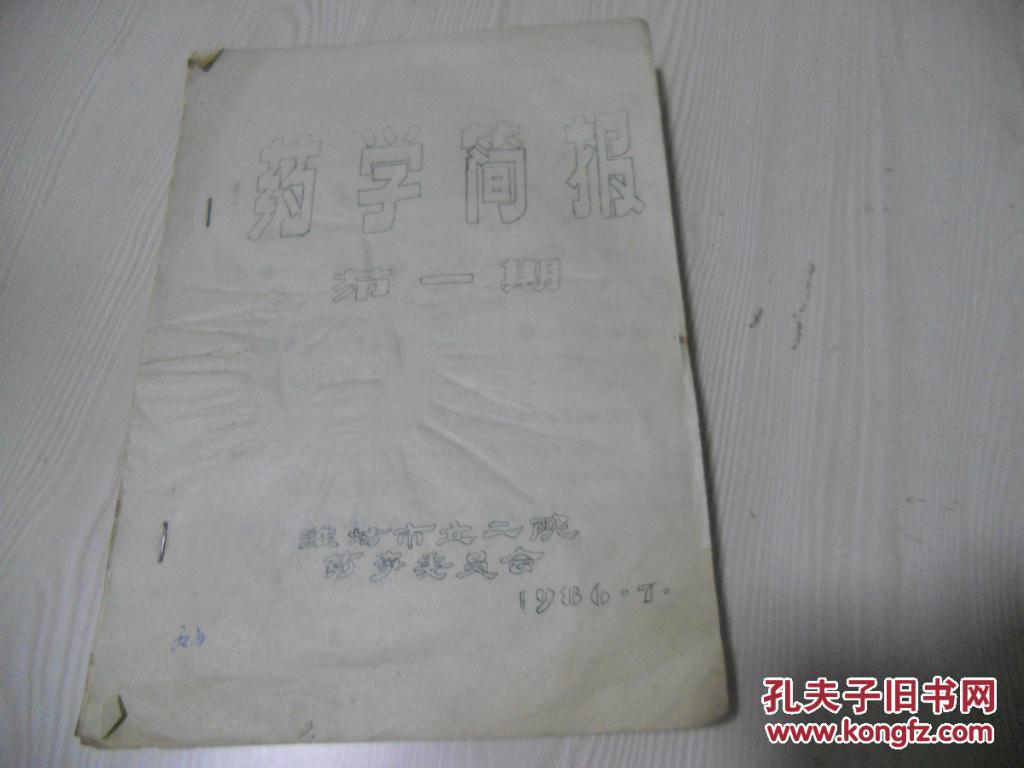 药学简报
第一期
潍坊市立二院
药事委员会
1986.7.
孔夫子旧书网
www.kongfz.com